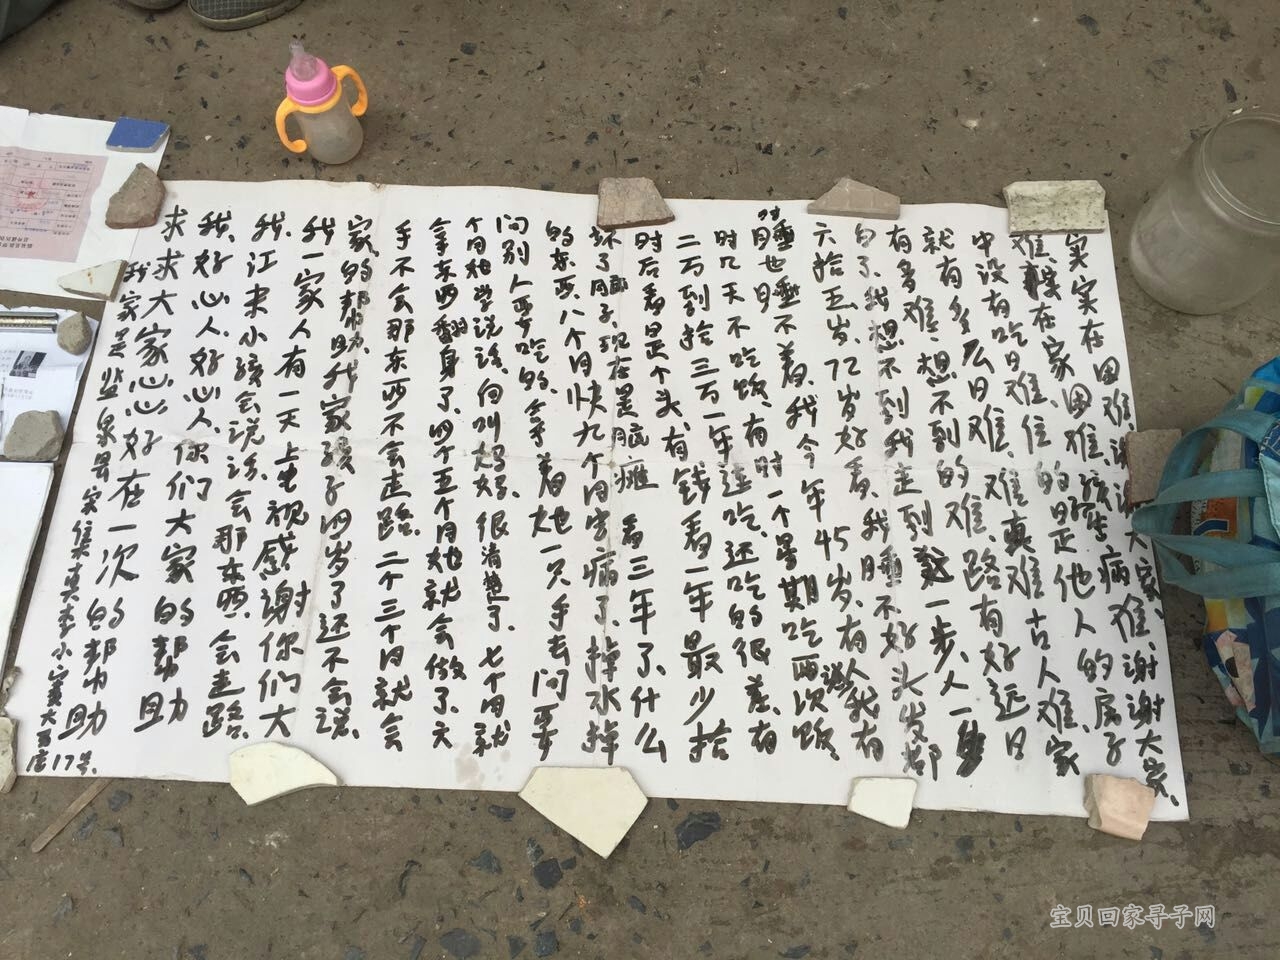 实实在困难,说说大家,谢谢大家,
难,难在家困难,孩子生病难,
中没有吃日难,住的是他人的房子
就有多么日难,难真难古人难,家
有多难,想不到的难,路有好远日
白了,我想不到我走到这一步,人一
六拾五岁,72岁好看,我睡不好头发都
睡也睡不着,我今年45岁,有人说我有
时几天不吃饭,有时一个星期吃两次饭,
二万到拾三万一年连吃,还吃的很差,有时
时后看是个头,有钱看一年最少拾
坏了脑子,现在是脑瘫 看三年了,什么
的东西,八个月快九个月害病了,掉水掉
问别人要吃的,拿着她一只手去问要
个月相学说话,向叫妈妈,很清楚了,七个月就
拿东西翻身了,四个五个月她就会做了,六
手不会那东西不会走路,二个三个月就会
家,的帮助,我家孩子四岁了还不会说,
我一家人有一天上电视感谢你们大
我,江未小孩会说话,会那东西,会走路,
我,好心人,好心人,你们大家的帮助
求求大家心心好在一次的帮助
我家是监泉县宋集真李小寨大吉店17号,
宝贝回家寻子网